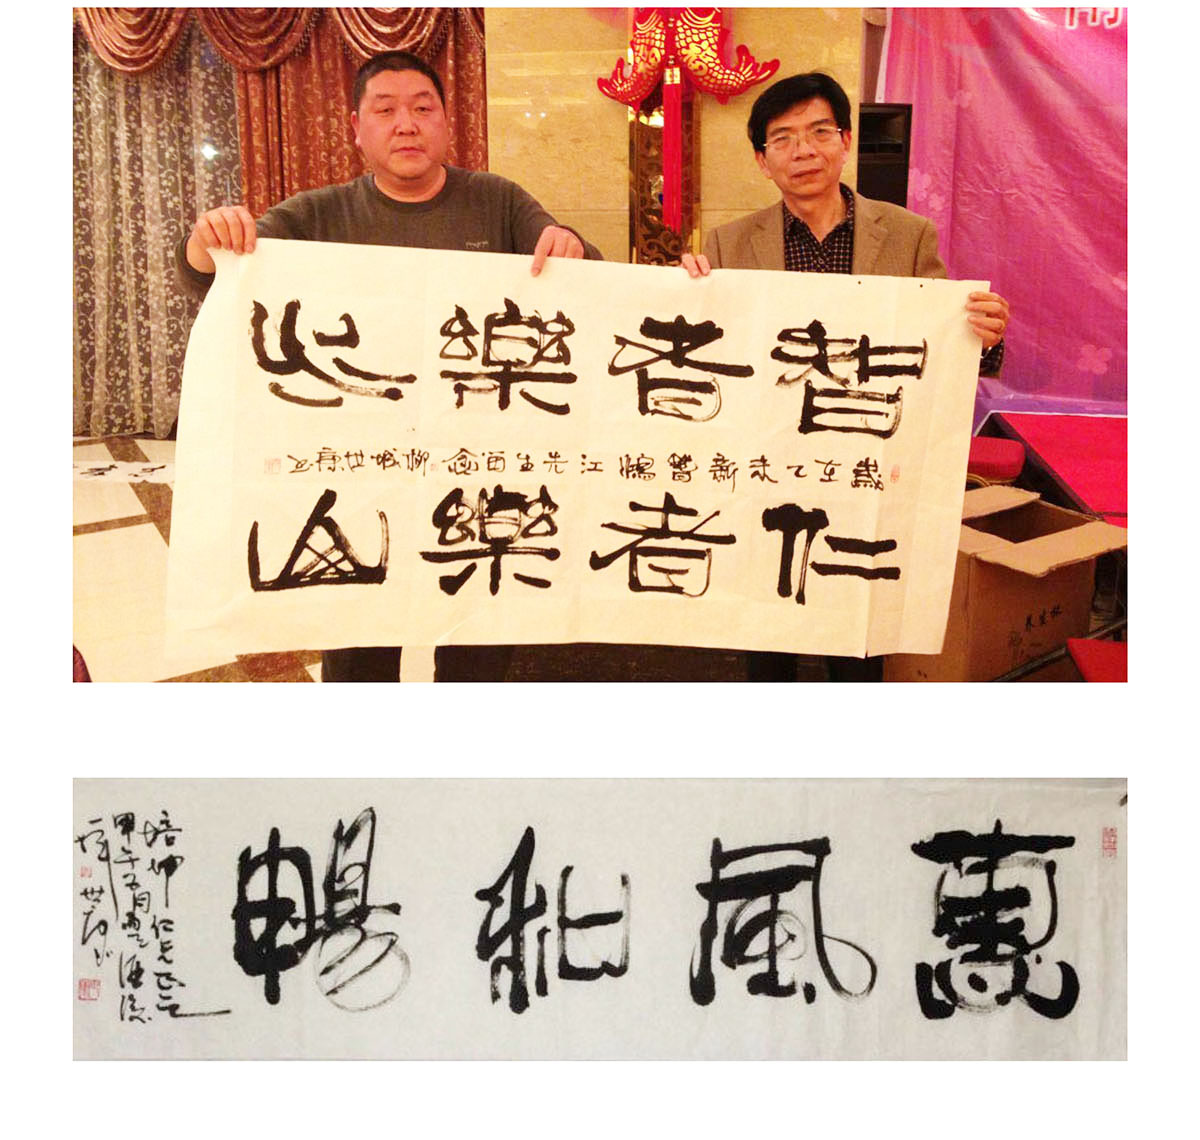 智者樂水
歲在乙未新春鴻江先生留念柳城世康书
仁者樂山
惠風和暢
培坤仁兄正之
甲午五月
世康书